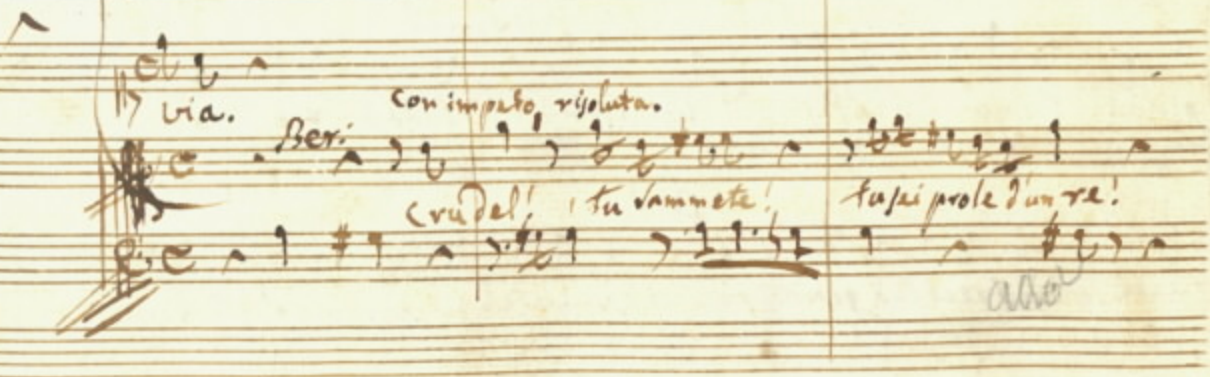 via.
con impeto, risoluta.
Ber:
Crudel! tu Sammete! tu sei prole d'un re!